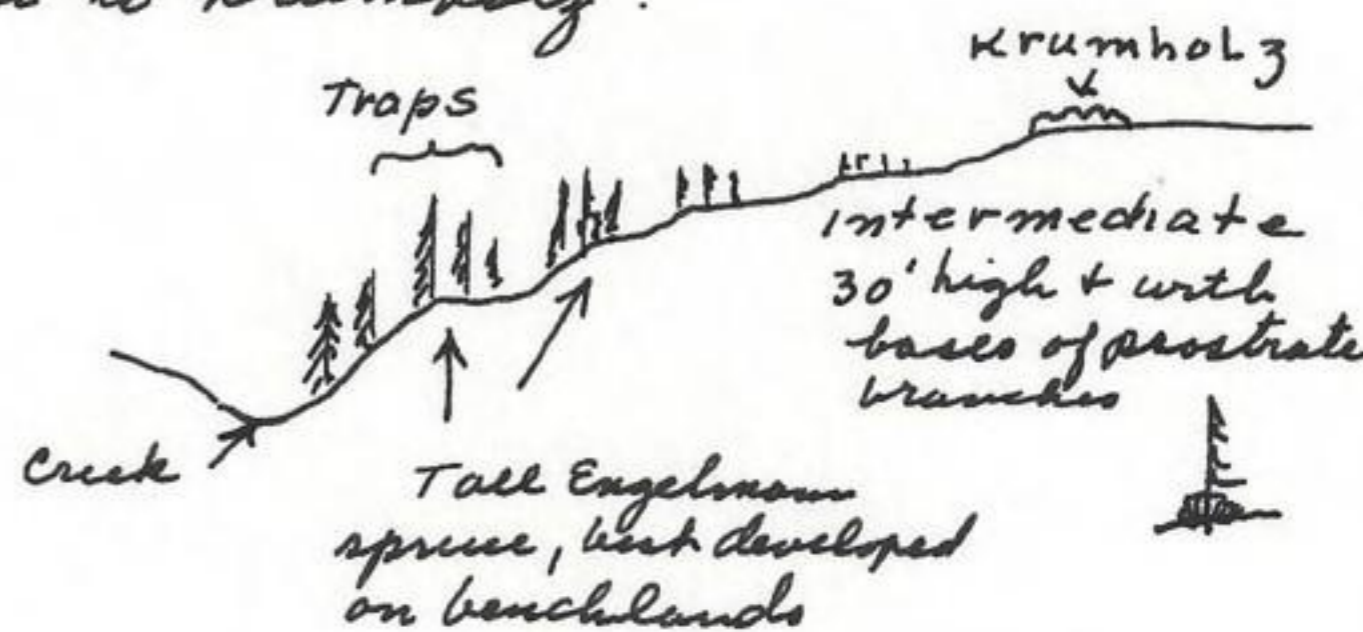 to Krumholz.
Krumholz
Traps
Intermediate
30' high + with
bases of prostrate
branches
Creek
Tall Engelmann
spruce, best developed
on benchlands